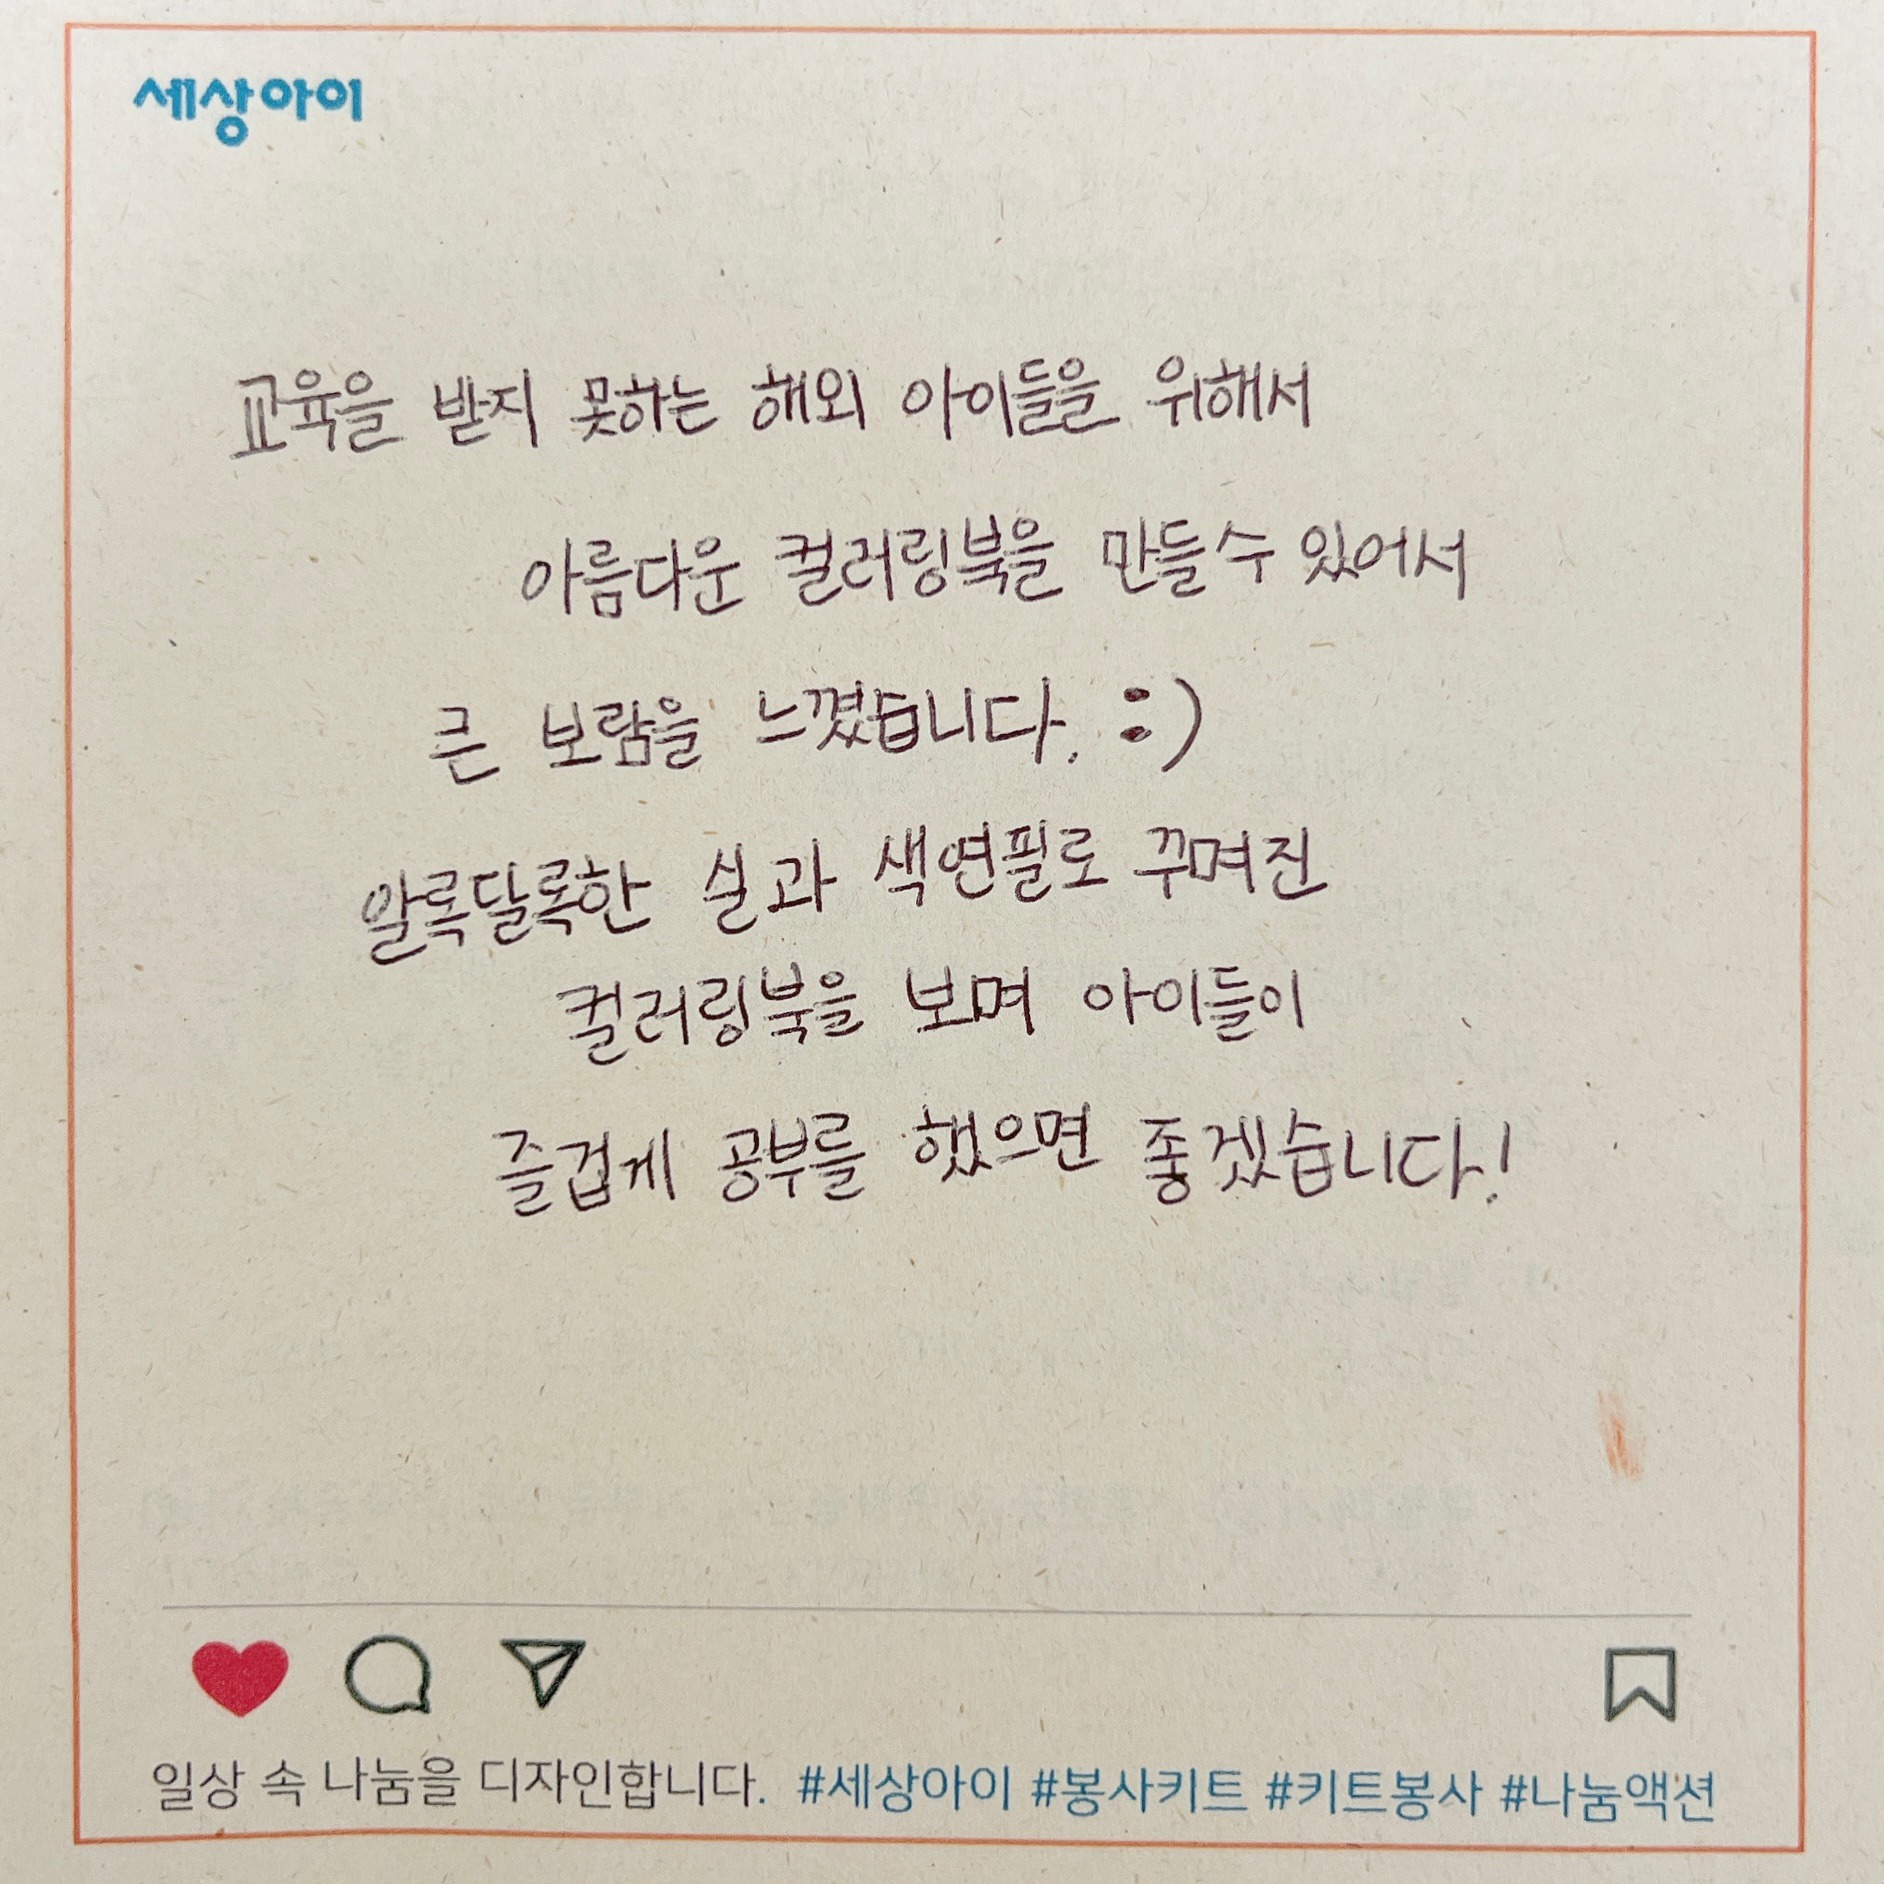 세상아이
교육을 받지 못하는 해외 아이들을 위해서
아름다운 컬러링북을 만들수 있어서
큰 보람을 느꼈습니다. :)
알록달록한 실과 색연필로 꾸며진
컬러링북을 보며 아이들이
즐겁게 공부를 했으면 좋겠습니다!
일상 속 나눔을 디자인합니다. #세상아이 #봉사키트 #키트봉사 #나눔액션